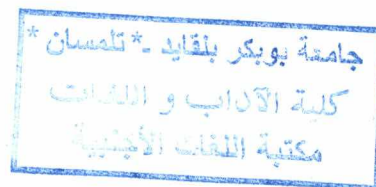 جامعة بوبكر بلقايد - * تلمسان *
كلية الآداب و اللغات
مكتبة اللغات الأجنبية